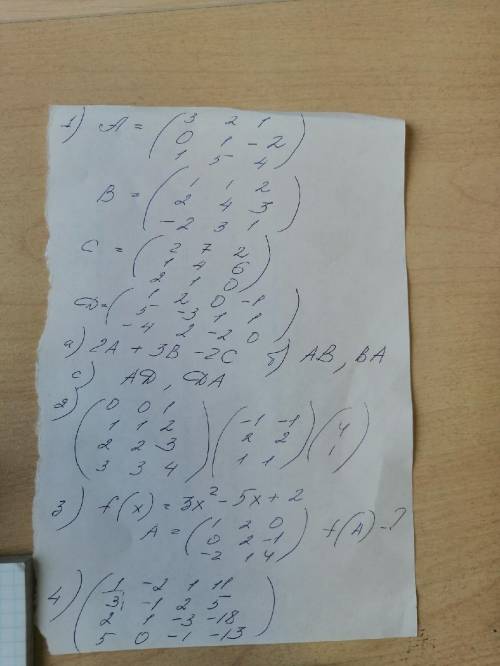 1) A = ( 3 2 1
0 1 -2
1 5 4 )
B = ( 1 1 2
2 4 3
-2 3 1 )
C = ( 2 7 2
1 4 6
2 1 0 )
D = ( 1 2 0 -1
5 -3 1 1
-4 2 -2 0 )
a) 2A + 3B - 2C б) AB, BA
c) AD, DA
2) ( 0 0 1
1 1 2
2 2 3
3 3 4 ) ( -1 -1
2 2
1 1 ) ( 4
1 )
3) f(x) = 3x² - 5x + 2
A = ( 1 2 0
0 2 -1
-2 1 4 ) f(A) - ?
4) ( 1 -2 1 11
3 -1 2 5
2 1 -3 -18
5 0 -1 -13 )